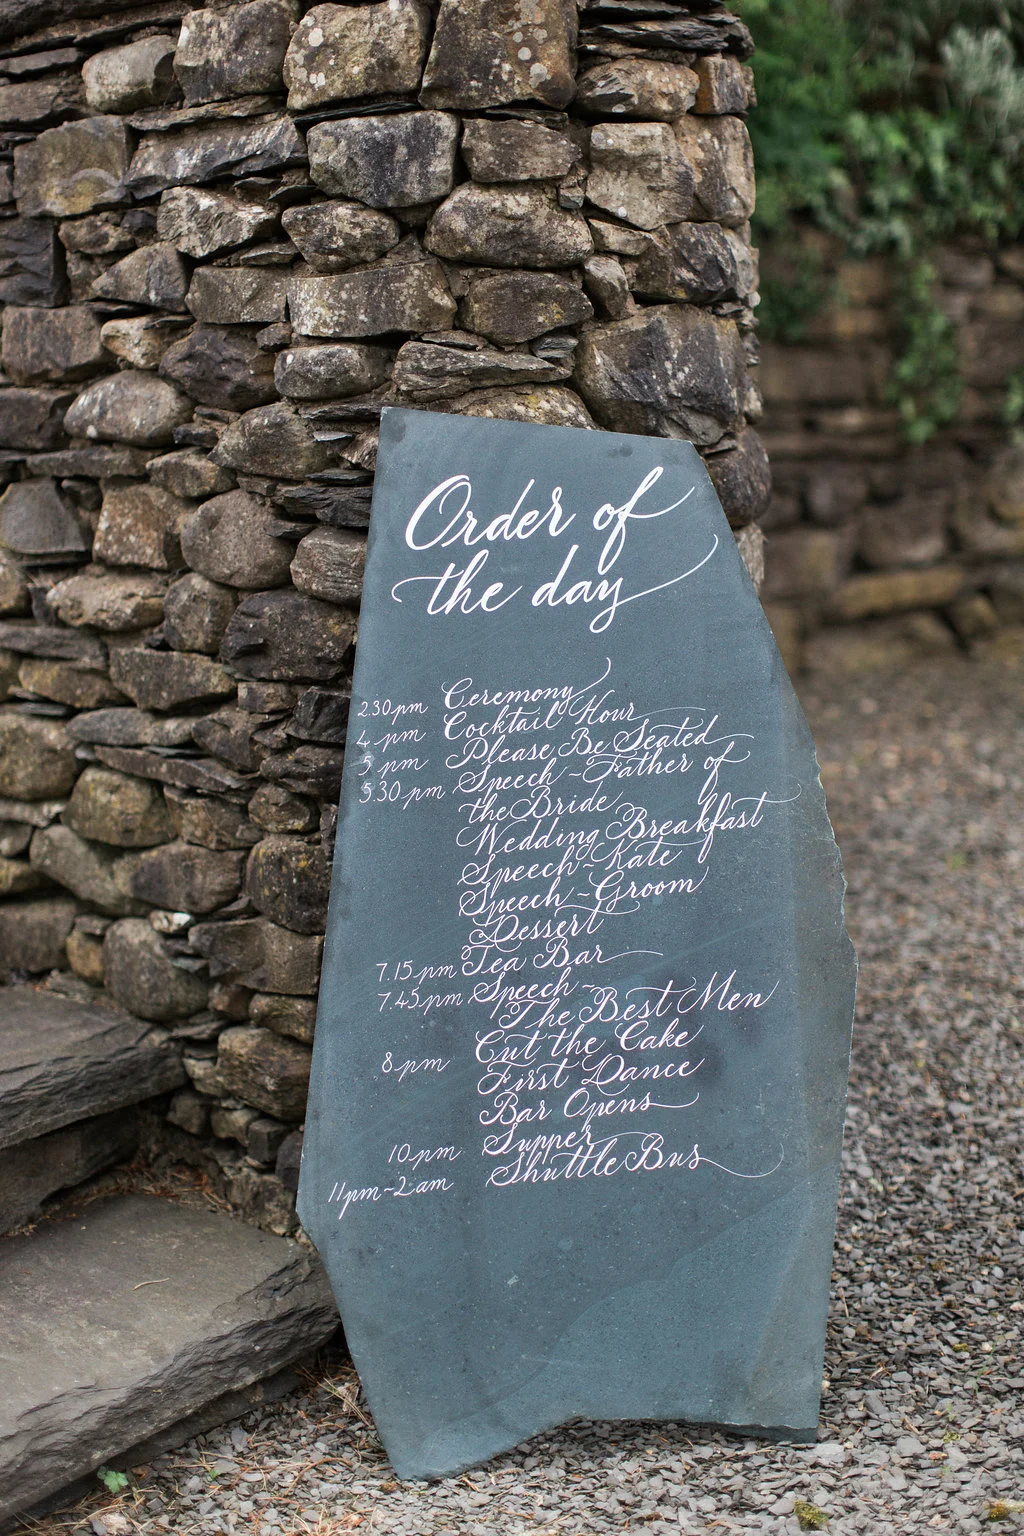 Order of
the day
2.30pm Ceremony
4 pm Cocktail Hour
5 pm Please Be Seated
5.30 pm Speech ~ Father of
the Bride
Wedding Breakfast
Speech ~ Kate
Speech ~ Groom
Dessert
7.15pm Tea Bar
7.45pm Speech ~
The Best Men
8pm Cut the Cake
First Dance
Bar Opens
10pm Supper
11pm~2am Shuttle Bus